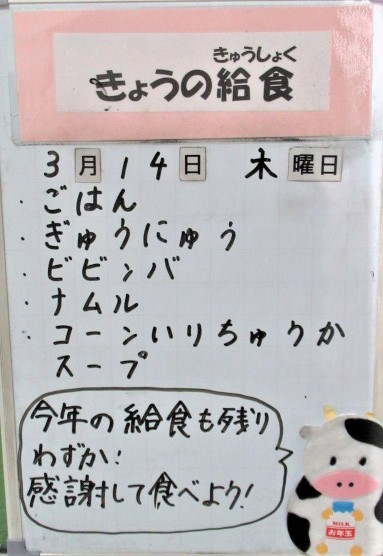 きゅうしょく
きょうの給食
3月14日 木曜日
・ごはん
・ぎゅうにゅう
・ビビンバ
・ナムル
・コーンいりちゅうか
スープ
今年の給食も残り
わずか!
感謝して食べよう!
MILK
お年玉